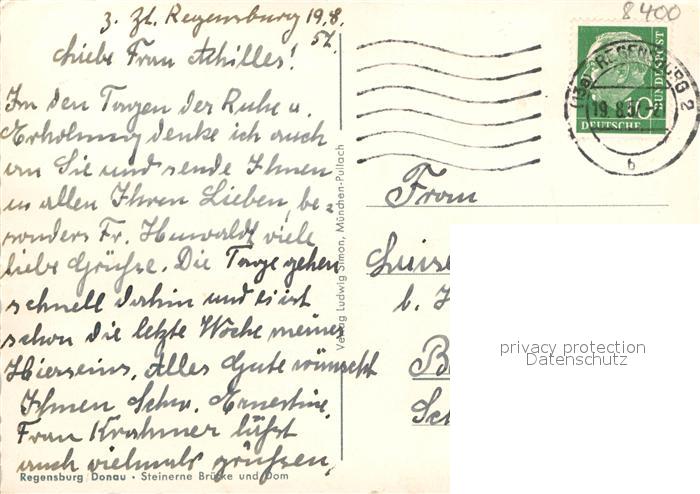 8400
z. Zt. Regensburg 19.8.
57.
Liebe Frau Achilles!
In den Tagen der Ruhe u.
Erholung denke ich auch
an Sie und sende Ihnen
u allen Ihren Lieben, be=
sonders Fr. Huwaldt viele
liebe Grüsse. Die Tage gehen
schnell dahin und es ist
schon die letzte Woche meines
Hierseins. Alles Gute wünscht
Ihnen Schw. Ernestine.
Frau Krahmer lässt
auch vielmals grüssen.
Regensburg/Donau • Steinerne Brücke und Dom
Verlag Ludwig Simon, München-Pullach
(13a) REGENSBURG 2
19.8.57
b
10
DEUTSCHE
BUNDESPOST
Frau
Luise
b.
privacy protection
Datenschutz